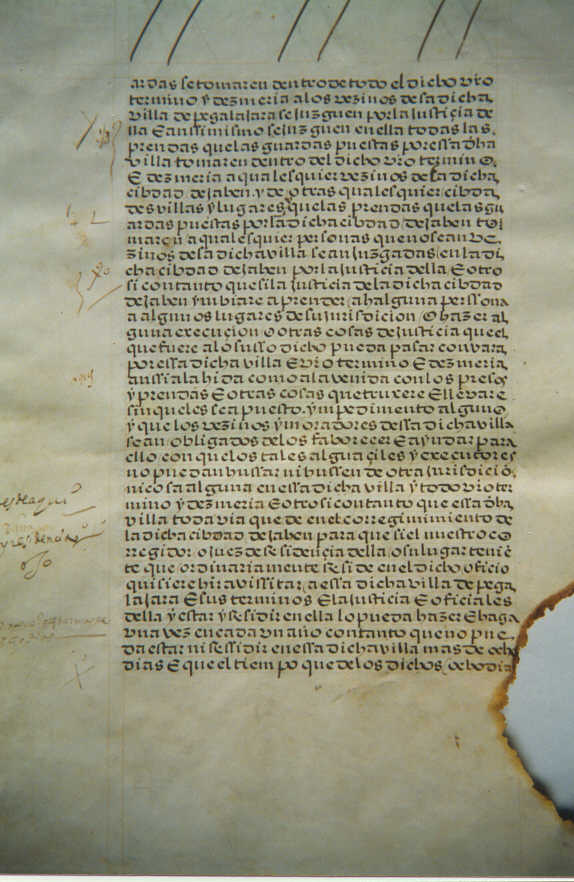 ardas se tomaren dentro de todo el dicho vro
termino y dezmeria a los vezinos de sa dicha
villa de pegalajara se juzguen por la justiçia de
lla E anssimismo se juzguen en ella todas las
prendas que las guardas puestas por essa dha
villa tomaren dentro del dicho vro termino
E dezmeria a qualesquier vezinos de la dicha
cibdad de jahen y de otras qualesquier cibda
des villas y lugares y que las prendas que las gu
ardas puestas por la dicha cibdad de jahen to
maren a qualesquier personas que no sean ve
zinos de sa dicha villa sean juzgadas en la di
cha cibdad de jahen por la justicia della E otro
si con tanto que si la justicia de la dicha cibdad
de jahen ynbiare a prender a halguna perssona
a algunos lugares de su jurisdicion o hazer al
guna execucion o otras cosas de justicia que el
que fuere a lo susso dicho pueda pasar con vara
por essa dicha villa E vro termino E dezmeria
anssi a la hida como a la venida con los presos
y prendas E otras cosas que truxere E llevare
sin que les sea puesto ynpedimento alguno
y que los vezinos y moradores dessa dicha villa
sean obligados de los faborecer E ayudar para
ello con que los tales alguaçiles y executores
no puedan hussar ni hussen de otra jurisdició
ni cosa alguna en essa dicha villa y todo vro ter
mino y dezmeria E otro si con tanto que essa dha
villa todavia que de en el corregimimiento de
la dicha cibdad de jahen para que si el nuestro co
rregidor o juez de residençia della o su lugar teniē
te que ordinariamente reside en el dicho oficio
quisiere hir a vissitar a essa dicha villa de pega
lajara E sus terminos E la justicia E oficiales
della y estar y residir en ella lo pueda hazer E haga
vna vez en cada vn año con tanto que no pue
da estar ni ressidir en essa dicha villa mas de ocho
dias E que el tiempo que de los dichos ocho dia